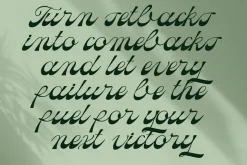 Turn setbacks
into comebacks
and let every
failure be the
fuel for your
next victory